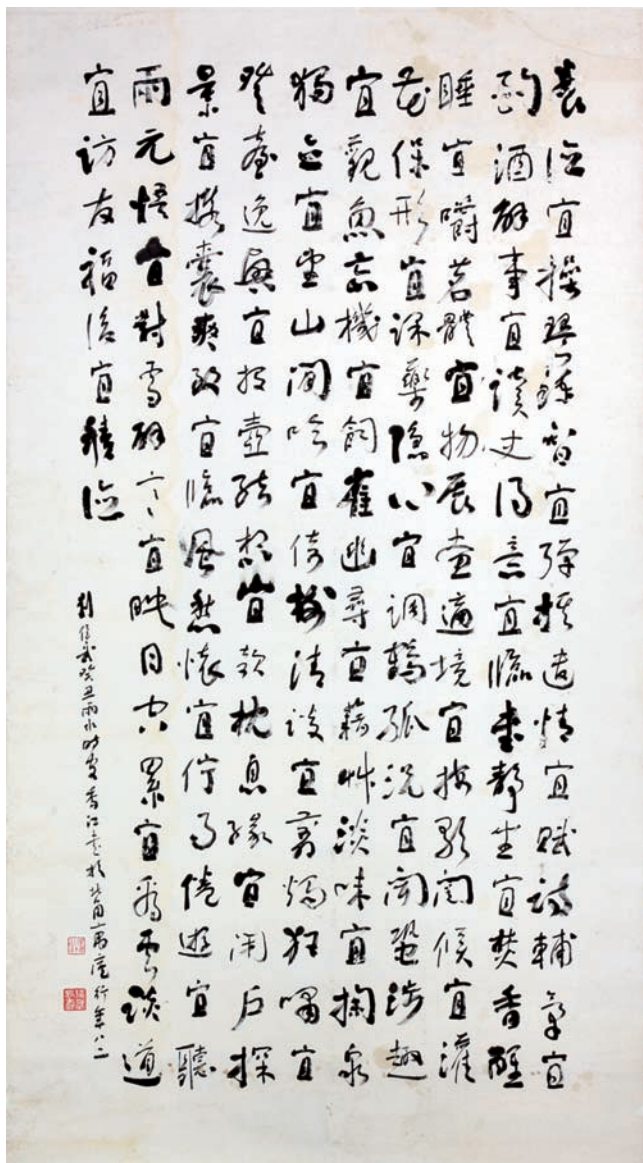 養德宜操琴鍊智宜彈棋遣情宜賦詩輔氣宜
酌酒解事宜讀史得意宜臨書靜坐宜焚香醒
睡宜嚼茗體宜物展畫適境宜按歌閱候宜灌
花保形宜課藥隱心宜調鶴孤況宜聞蛩涉趣
宜觀魚忘機宜飼雀幽尋宜藉艸淡味宜掬泉
獨立宜望山閒吟宜倚樹清談宜剪燭狂嘯宜
登臺逸興宜投壺結想宜欹枕息緣宜閉戶探
景宜携囊爽致宜臨風愁懷宜佇月倦遊宜聽
雨元悟宜對雪辟寒宜映日空累宜看雲談道
宜訪友福後宜積德
劉侯武癸丑雨水時客香江書於北角寓廬行年八二